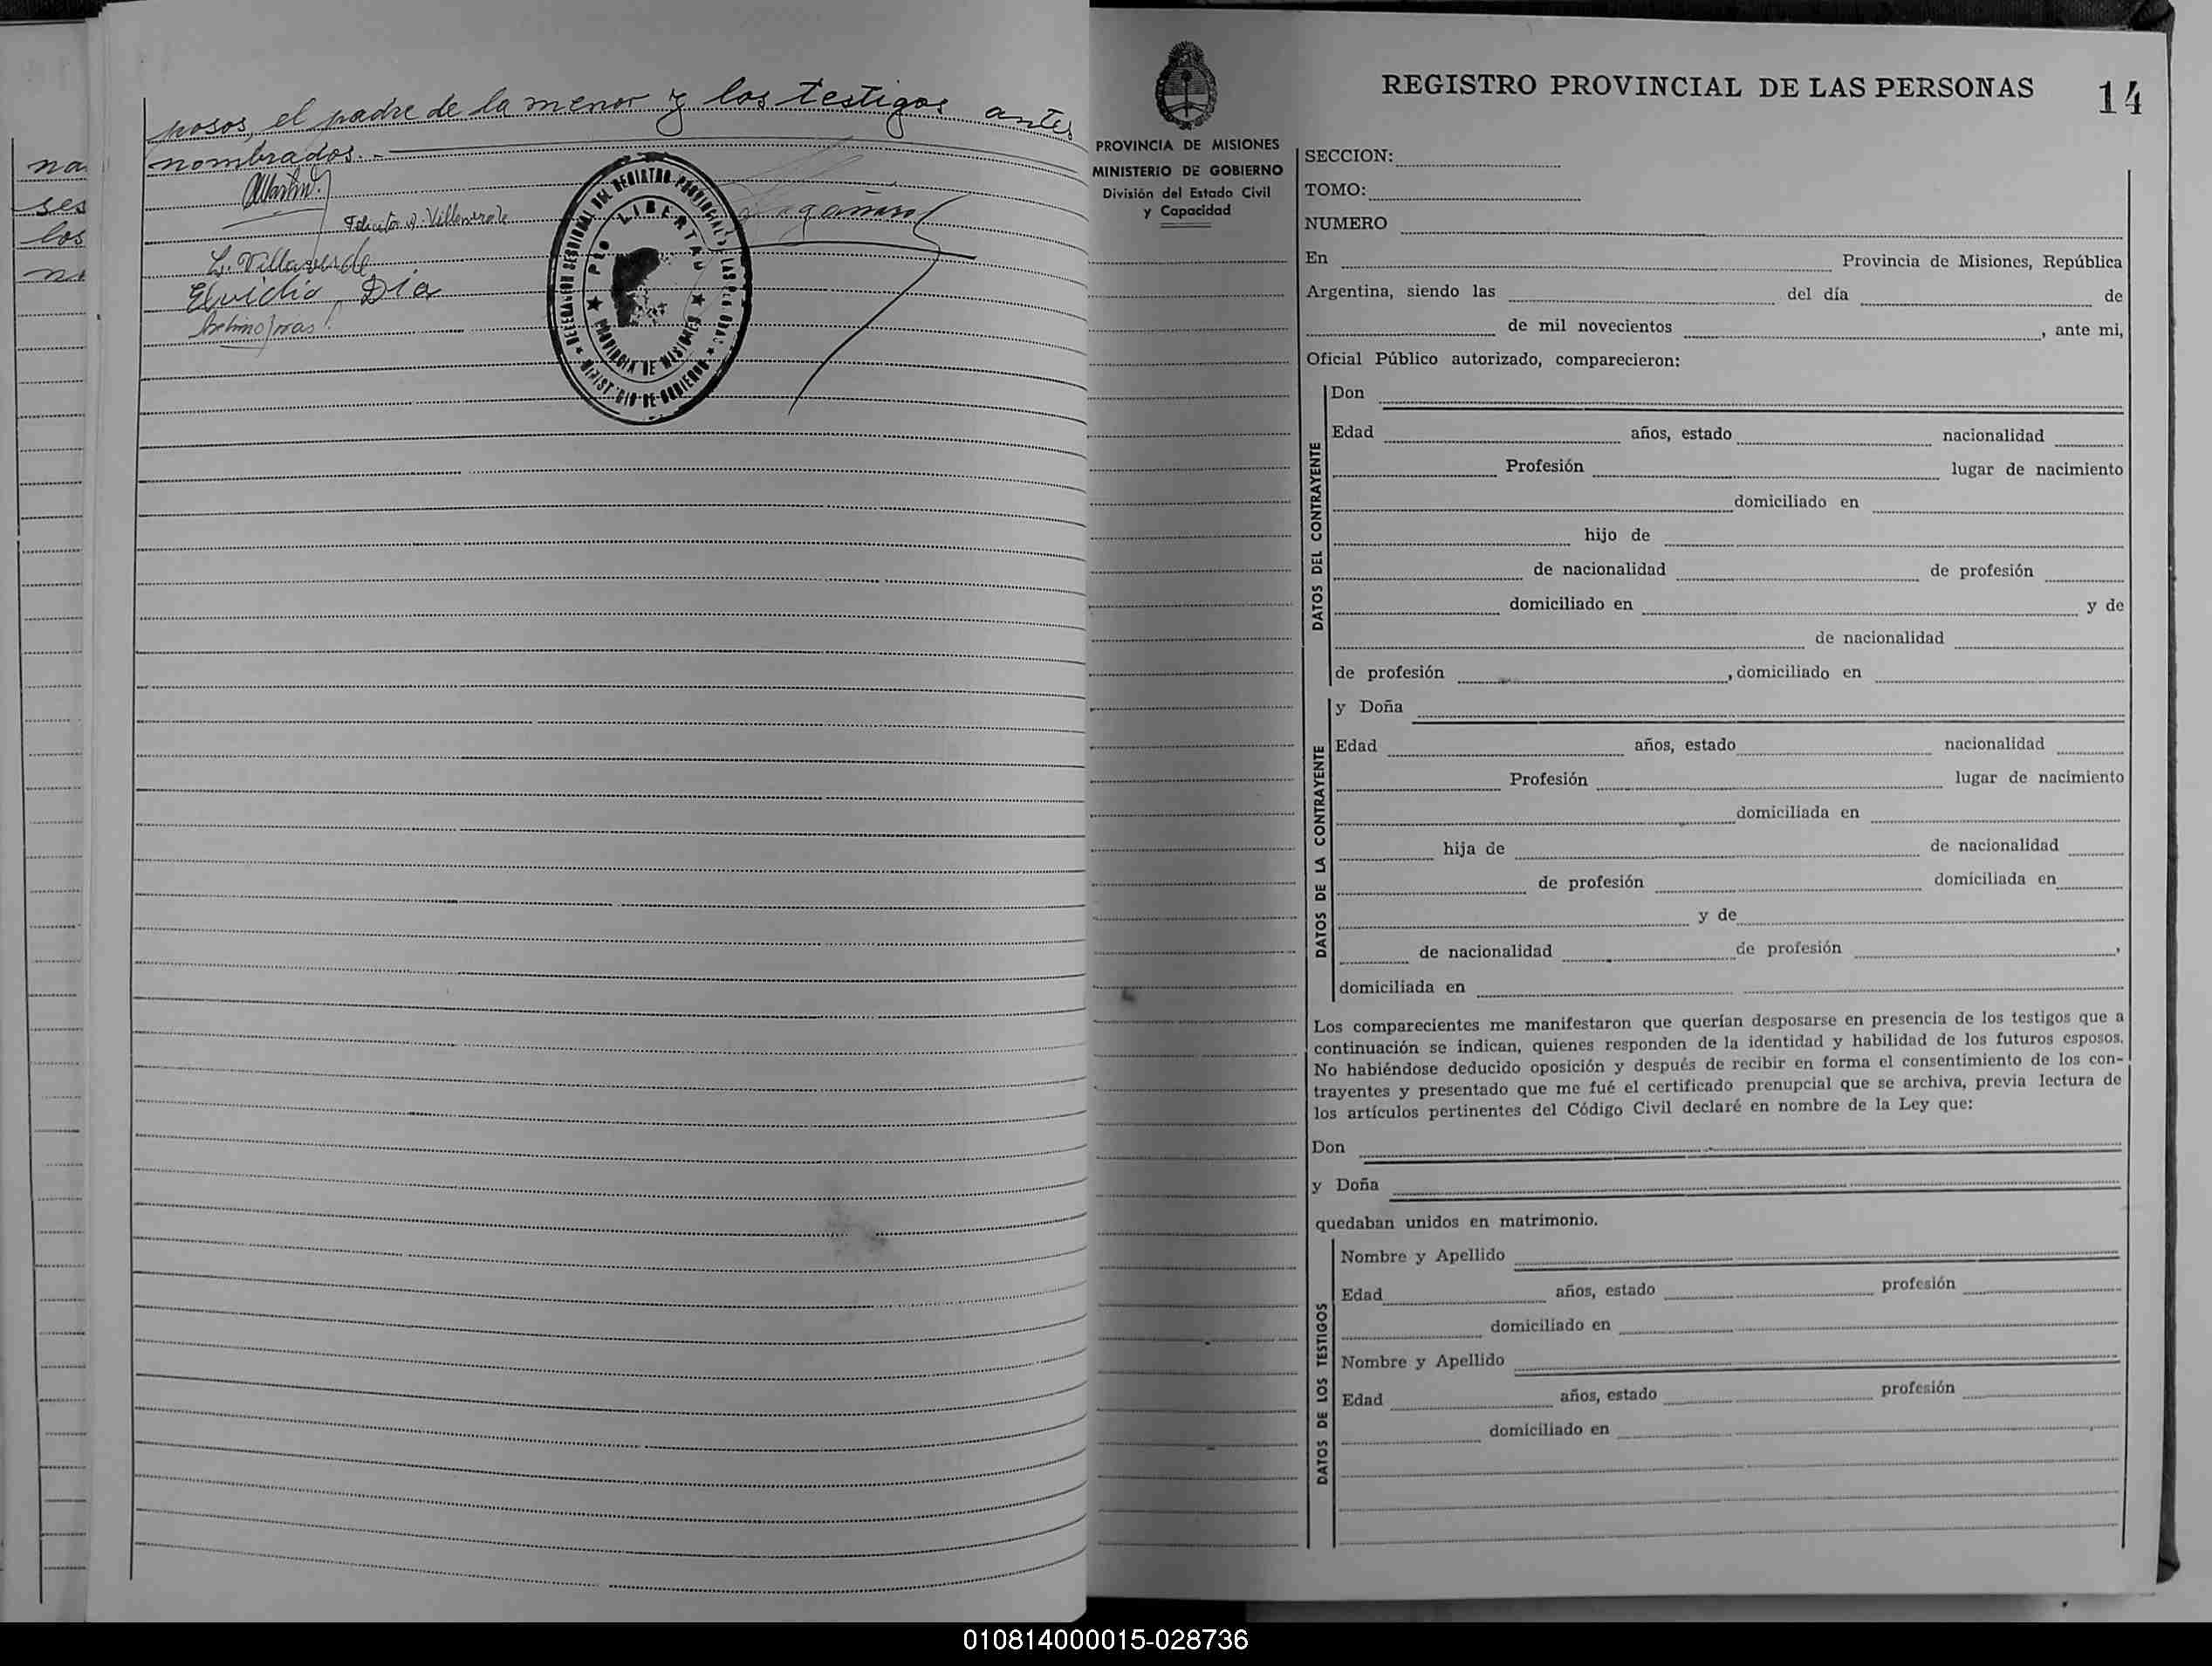 na
ses
los
posos, el padre de la menor y los testigos antes
nombrados.-
L. Villaverde
Elvidio Dia
DELEGACION SECCIONAL DEL REGISTRO PROVINCIAL DE LAS PERSONAS
PTO LIBERTAD
PROVINCIA DE MISIONES
MINISTERIO DE GOBIERNO
PROVINCIA DE MISIONES
MINISTERIO DE GOBIERNO
División del Estado Civil
y Capacidad
REGISTRO PROVINCIAL DE LAS PERSONAS
14
SECCION:
TOMO:
NUMERO
En Provincia de Misiones, República
Argentina, siendo las del día de
de mil novecientos , ante mi,
Oficial Público autorizado, comparecieron:
DATOS DEL CONTRAYENTE
Don
Edad años, estado nacionalidad
Profesión lugar de nacimiento
domiciliado en
hijo de
de nacionalidad de profesión
domiciliado en y de
de nacionalidad
de profesión , domiciliado en
DATOS DE LA CONTRAYENTE
y Doña
Edad años, estado nacionalidad
Profesión lugar de nacimiento
domiciliada en
hija de de nacionalidad
de profesión domiciliada en
y de
de nacionalidad de profesión ,
domiciliada en
Los comparecientes me manifestaron que querían desposarse en presencia de los testigos que a
continuación se indican, quienes responden de la identidad y habilidad de los futuros esposos.
No habiéndose deducido oposición y después de recibir en forma el consentimiento de los con-
trayentes y presentado que me fué el certificado prenupcial que se archiva, previa lectura de
los artículos pertinentes del Código Civil declaré en nombre de la Ley que:
Don
y Doña
quedaban unidos en matrimonio.
DATOS DE LOS TESTIGOS
Nombre y Apellido
Edad años, estado profesión
domiciliado en
Nombre y Apellido
Edad años, estado profesión
domiciliado en
010814000015-028736